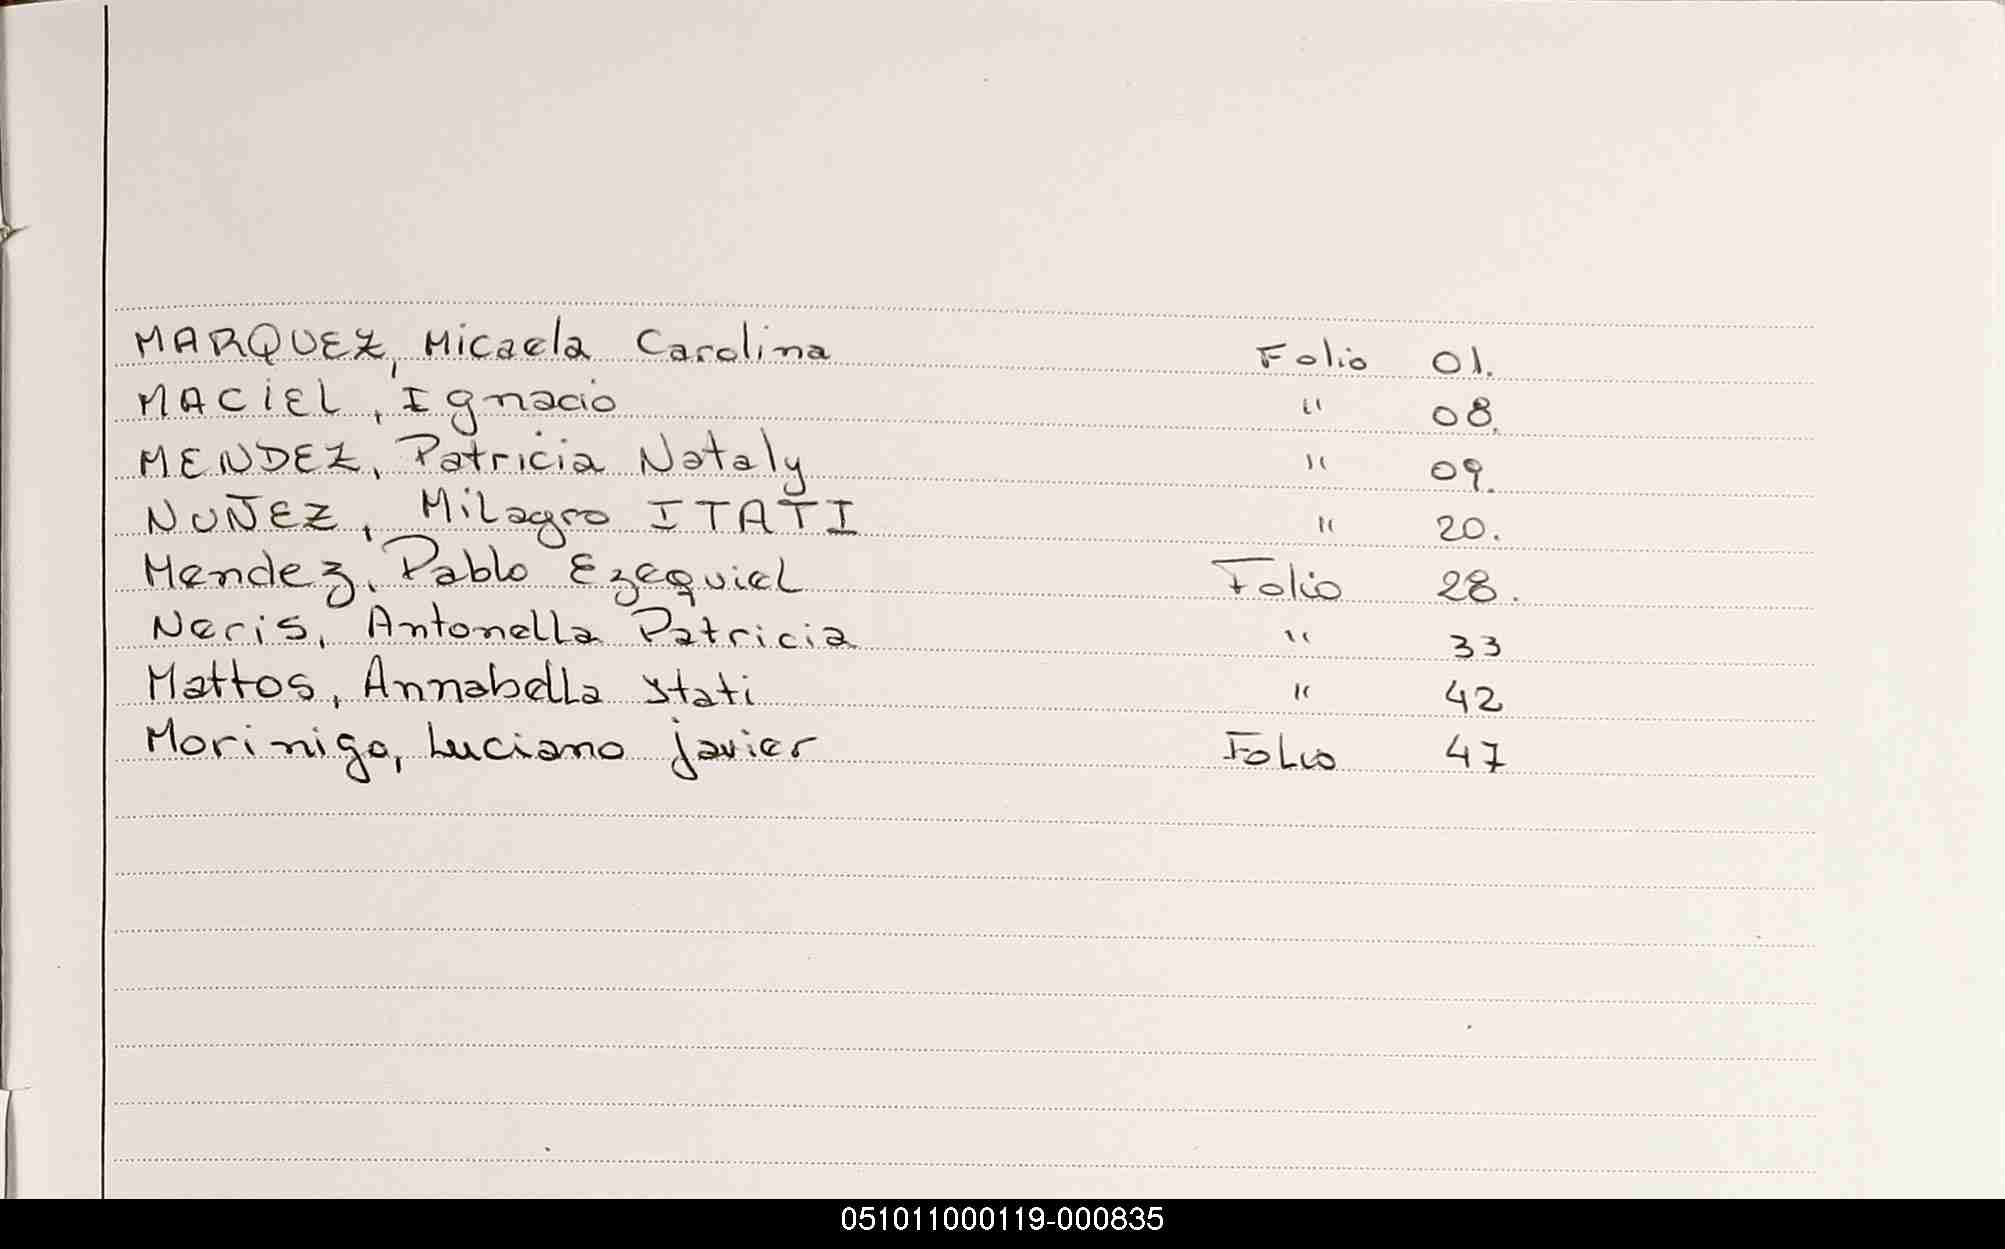 MARQUEZ, Micaela Carolina Folio 01.
MACIEL, Ignacio " 08.
MENDEZ, Patricia Nataly " 09.
NUÑEZ, Milagro ITATI " 20.
Mendez, Pablo Ezequiel Folio 28.
Neris, Antonella Patricia " 33
Mattos, Annabella Ytati " 42
Morinigo, Luciano javier Folio 47
051011000119-000835